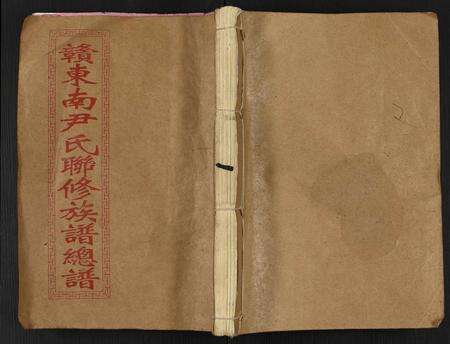 贛東南尹氏聯修族譜總譜